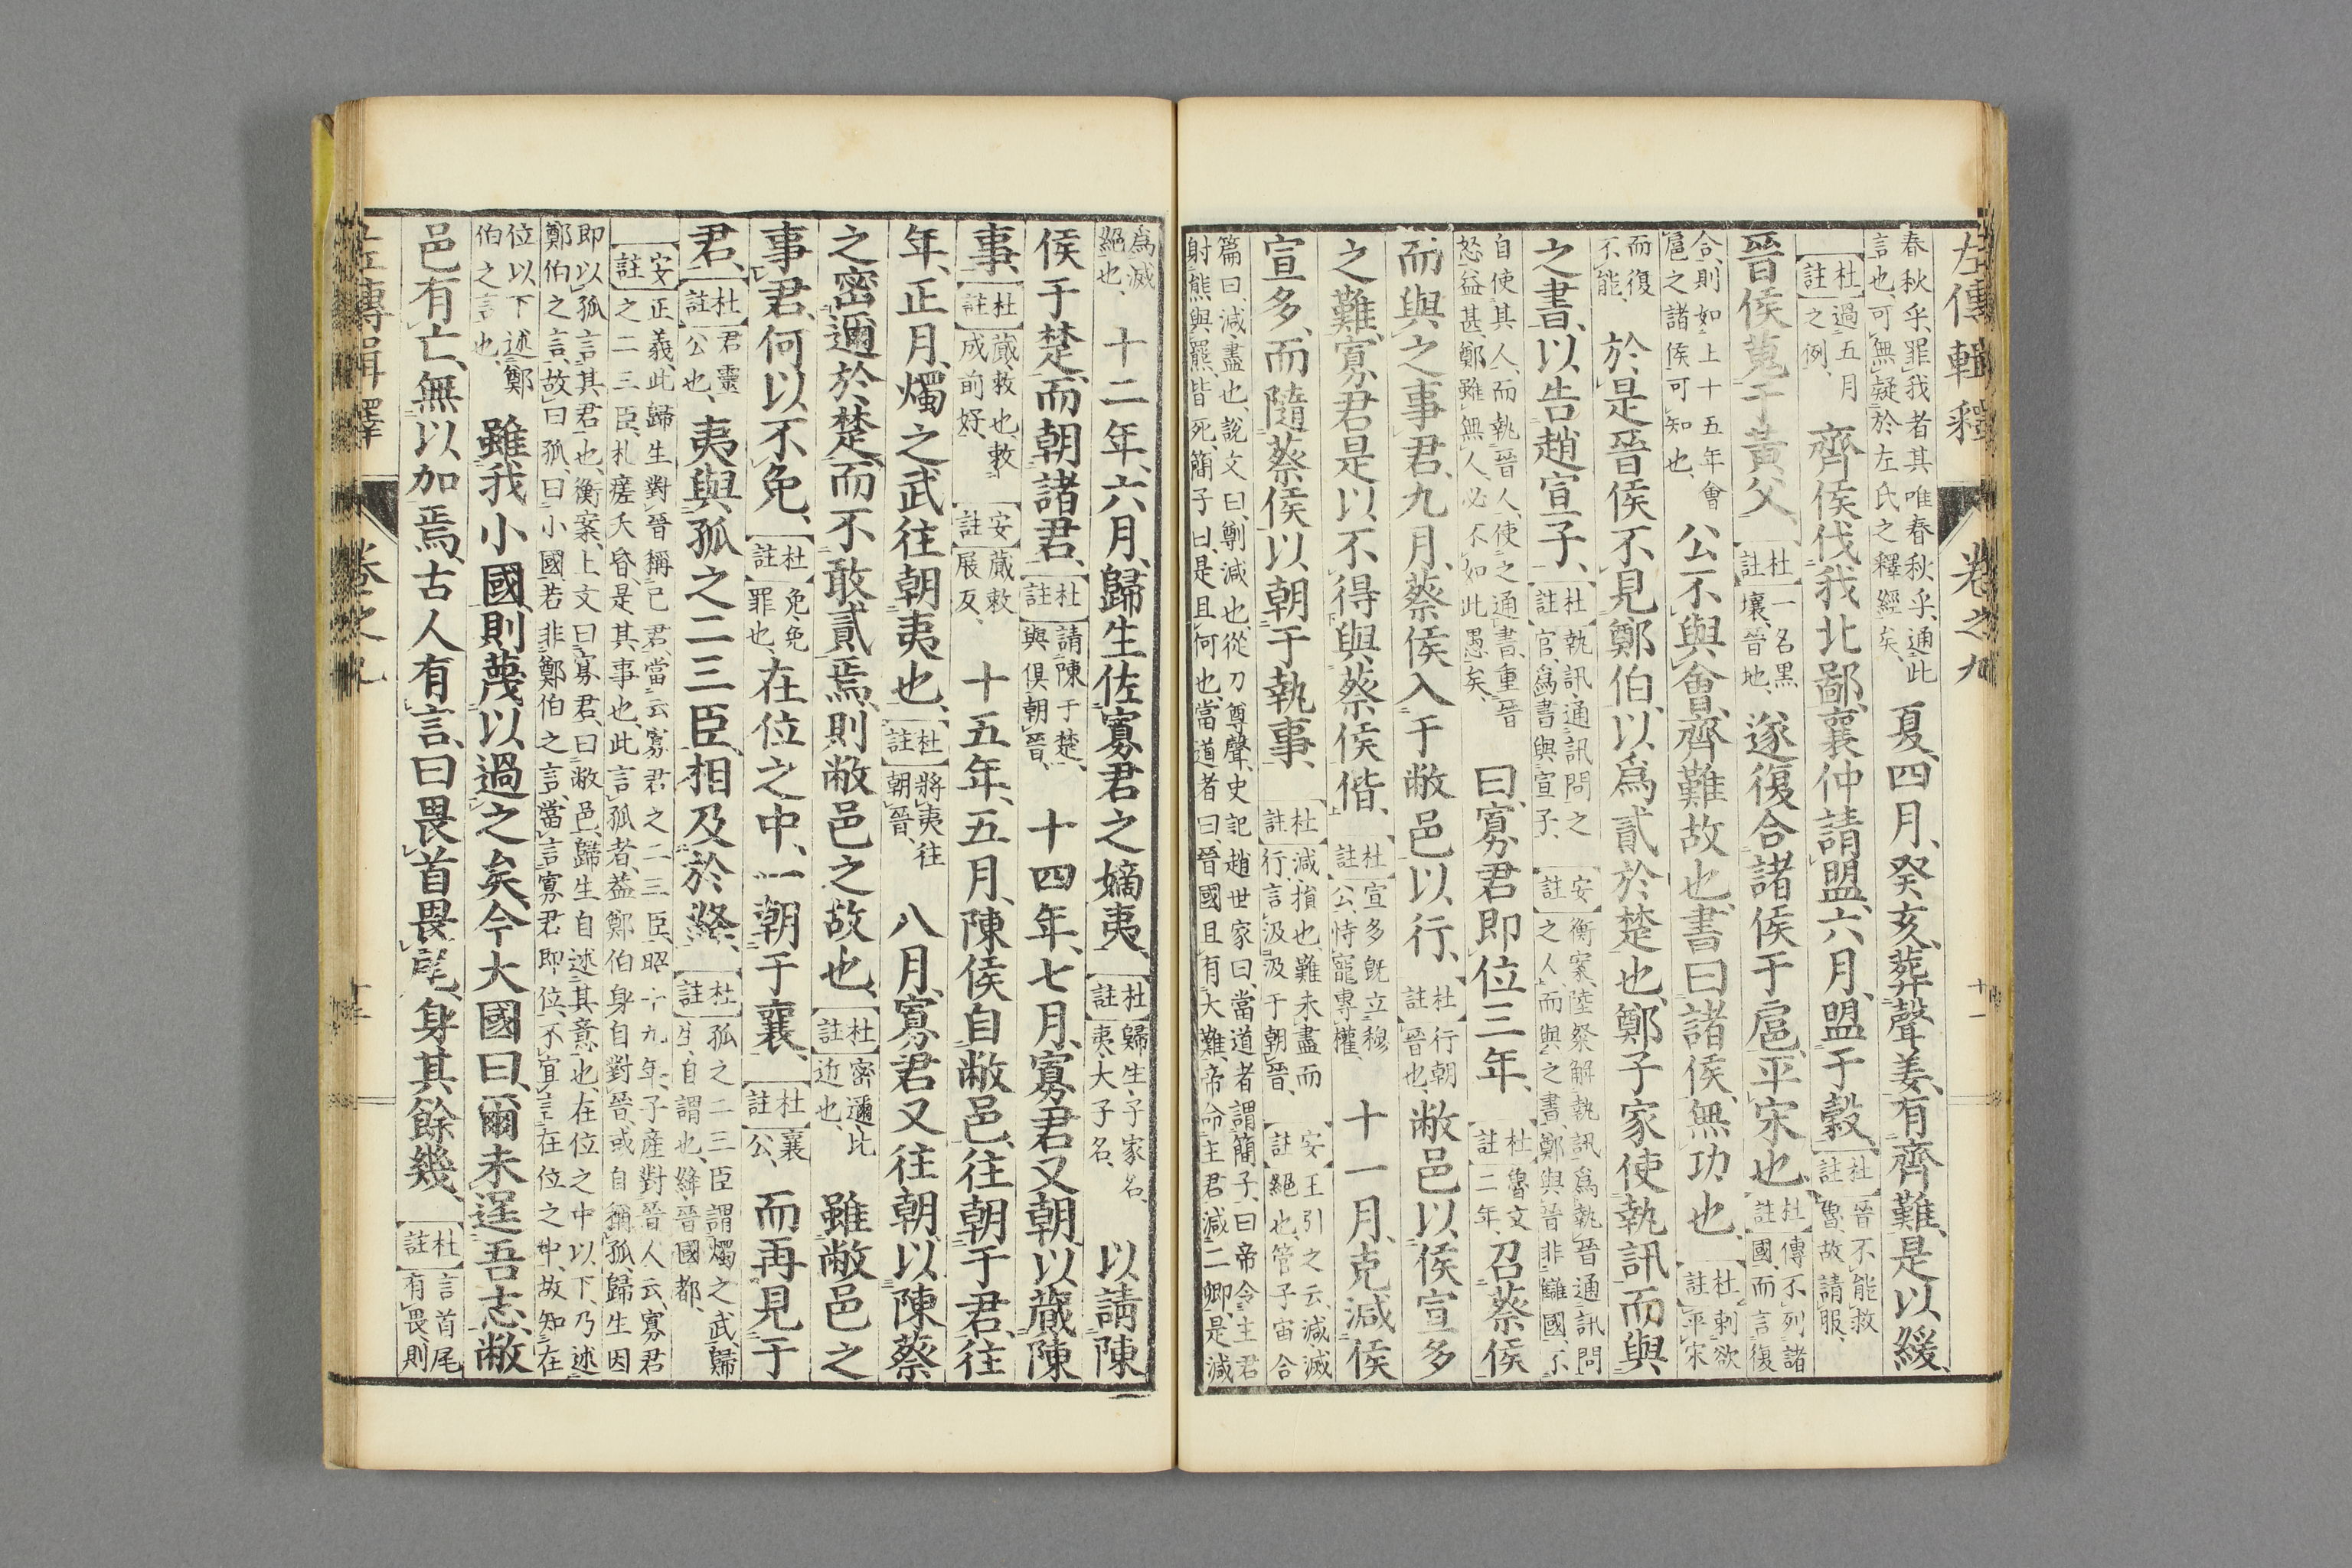 左傳輯釋　卷之九
春秋乎、罪我者其唯春秋乎、通此
言也、可無疑於左氏之釋經矣、
夏、四月、癸亥、葬聲姜、有齊難、是以緩、
杜註
過五月
之例、
齊侯伐我北鄙、襄仲請盟、六月、盟于穀、
杜註
晉不能救
魯、故請服、
晉侯蒐于黃父、
杜註
一名黑
壤、晉地、
遂復合諸侯于扈、平宋也、
杜註
傳不列諸
國、而言復
合、則如上十五年會
扈之諸侯可知也、
公不與會、齊難故也、書曰諸侯、無功也、
杜註
刺欲
平宋
而復
不能、
於是晉侯不見鄭伯、以爲貳於楚也、鄭子家使執訊而與
之書、以告趙宣子、
杜註
執訊、通訊問之
官、爲書與宣子、
安註
衡案、陸粲解執訊爲執晉通訊問
之人、而與之書、鄭與晉非讎國、不
自使其人、而執晉人、使之通書、重晉
怒益甚、鄭雖無人、必不如此愚矣、
曰、寡君即位三年、
杜註
魯文
二年、
召蔡侯
而與之事君、九月、蔡侯入于敝邑以行、
杜註
行朝
晉也、
敝邑以侯宣多
之難、寡君是以不得與蔡侯偕、
杜註
宣多既立穆
公、恃寵專權、
十一月、克減侯
宣多、而隨蔡侯以朝于執事、
杜註
減、損也、難未盡而
行、言汲汲于朝晉、
安註
王引之云、減、滅
絕也、管子宙合
篇曰、減、盡也、說文曰、劕、減也、從刀尊聲、史記趙世家曰、當道者謂簡子曰、帝令主君
射熊與羆、皆死、簡子曰、是且何也、當道者曰、晉國且有大難、帝命主君減二卿、是減
爲滅
絕也、
十二年、六月、歸生佐寡君之嫡夷、
杜註
歸生、子家名、
夷、大子名、
以請陳
侯于楚、而朝諸君、
杜註
請陳于楚、
與俱朝晉、
十四年、七月、寡君又朝、以蕆陳
事、
杜註
蕆、敕也、敕
成前好、
安註
蕆、敕
展反、
十五年、五月、陳侯自敝邑、往朝于君、往
年、正月、燭之武往朝夷也、
杜註
將夷往
朝晉、
八月、寡君又往朝、以陳蔡
之密邇於楚、而不敢貳焉、則敝邑之故也、
杜註
密邇、比
近也、
雖敝邑之
事君、何以不免、
杜註
免、免
罪也、
在位之中、一朝于襄、
杜註
襄
公、
而再見于
君、
杜註
君、靈
公也、
夷與孤之二三臣、相及於絳、
杜註
孤之二三臣、謂燭之武、歸
生、自謂也、絳、晉國都、
安註
正義、此歸生對晉稱己君、當云寡君之二三臣、昭十九年、子產對晉人云、寡君
之二三臣、札瘥夭昏、是其事也、此言孤者、蓋鄭伯身自對晉、或自稱孤、歸生因
即以孤言其君也、衡案、上文曰寡君、曰敝邑、歸生自述其意也、在位之中以下、乃述
鄭伯之言、故曰孤、曰小國、若非鄭伯之言、當言寡君即位、不宜言在位之中、故知在
位以下述鄭
伯之言也、
雖我小國、則蔑以過之矣、今大國曰、爾未逞吾志、敝
邑有亡、無以加焉、古人有言、曰、畏首畏尾、身其餘幾、
杜註
言首尾
有畏、則
左傳輯釋　卷之九